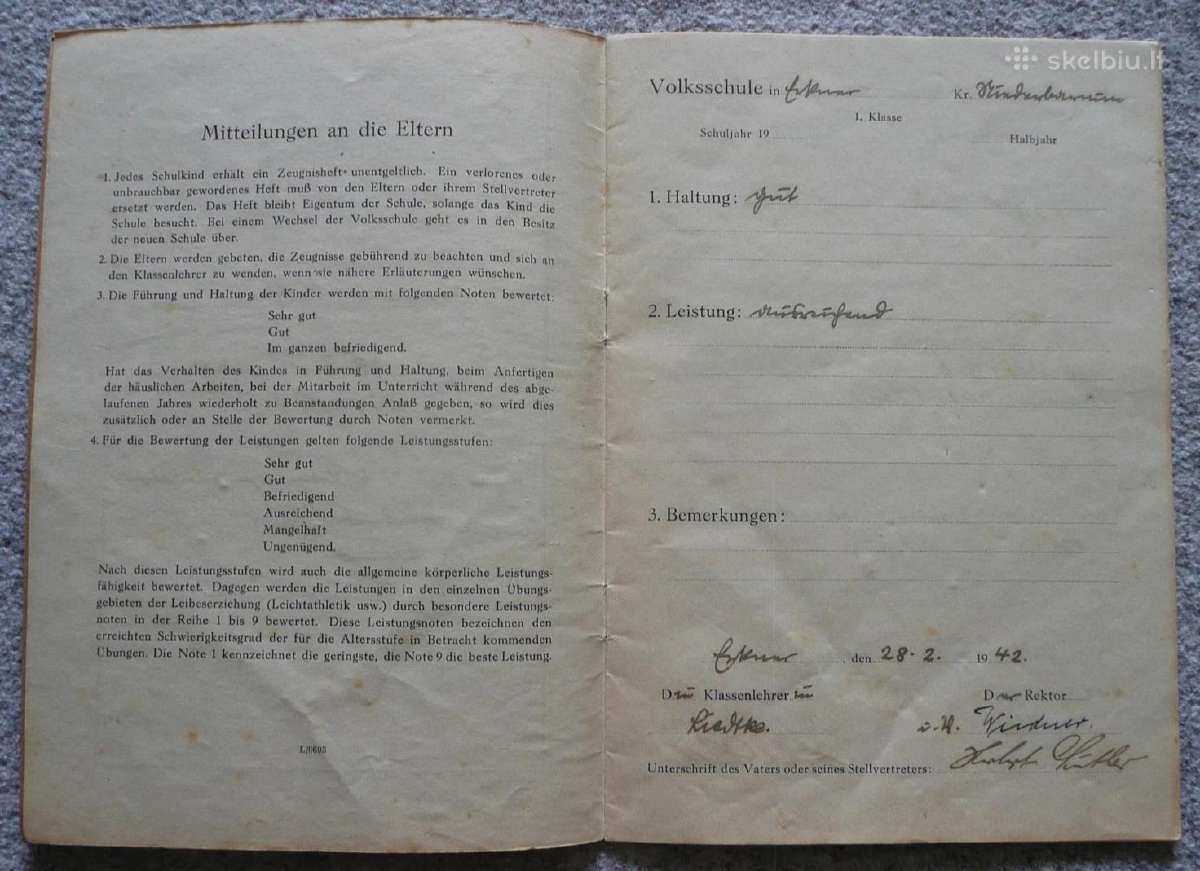 Mitteilungen an die Eltern
1. Jedes Schulkind erhält ein Zeugnisheft unentgeltlich. Ein verlorenes oder
unbrauchbar gewordenes Heft muß von den Eltern oder ihrem Stellvertreter
ersetzt werden. Das Heft bleibt Eigentum der Schule, solange das Kind die
Schule besucht. Bei einem Wechsel der Volksschule geht es in den Besitz
der neuen Schule über.
2. Die Eltern werden gebeten, die Zeugnisse gebührend zu beachten und sich an
den Klassenlehrer zu wenden, wenn sie nähere Erläuterungen wünschen.
3. Die Führung und Haltung der Kinder werden mit folgenden Noten bewertet:
Sehr gut
Gut
Im ganzen befriedigend.
Hat das Verhalten des Kindes in Führung und Haltung, beim Anfertigen
der häuslichen Arbeiten, bei der Mitarbeit im Unterricht während des abge-
laufenen Jahres wiederholt zu Beanstandungen Anlaß gegeben, so wird dies
zusätzlich oder an Stelle der Bewertung durch Noten vermerkt.
4. Für die Bewertung der Leistungen gelten folgende Leistungsstufen:
Sehr gut
Gut
Befriedigend
Ausreichend
Mangelhaft
Ungenügend.
Nach diesen Leistungsstufen wird auch die allgemeine körperliche Leistungs-
fähigkeit bewertet. Dagegen werden die Leistungen in den einzelnen Übungs-
gebieten der Leibeserziehung (Leichtathletik usw.) durch besondere Leistungs-
noten in der Reihe 1 bis 9 bewertet. Diese Leistungsnoten bezeichnen den
erreichten Schwierigkeitsgrad der für die Altersstufe in Betracht kommenden
Übungen. Die Note 1 kennzeichnet die geringste, die Note 9 die beste Leistung.
L/0603
skelbiu.lt
Volksschule in Erkner Kr. Niederbarnim
1. Klasse
Schuljahr 19 Halbjahr
1. Haltung: gut
2. Leistung: ausreichend
3. Bemerkungen:
Erkner, den 28. 2. 1942.
Die Klassenlehrerin Der Rektor
Liedtke. i. V.
Unterschrift des Vaters oder seines Stellvertreters: